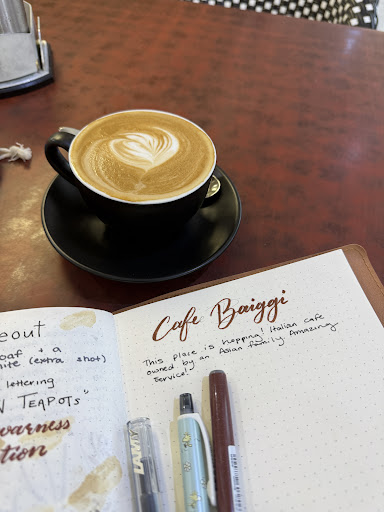 eout
oaf + a
ite (extra shot)
lettering
N TEAPOTS"
warness
tion
Cafe Baiggi
This place is hopping! Italian cafe
owned by an Asian family Amazing
service!
LAMY